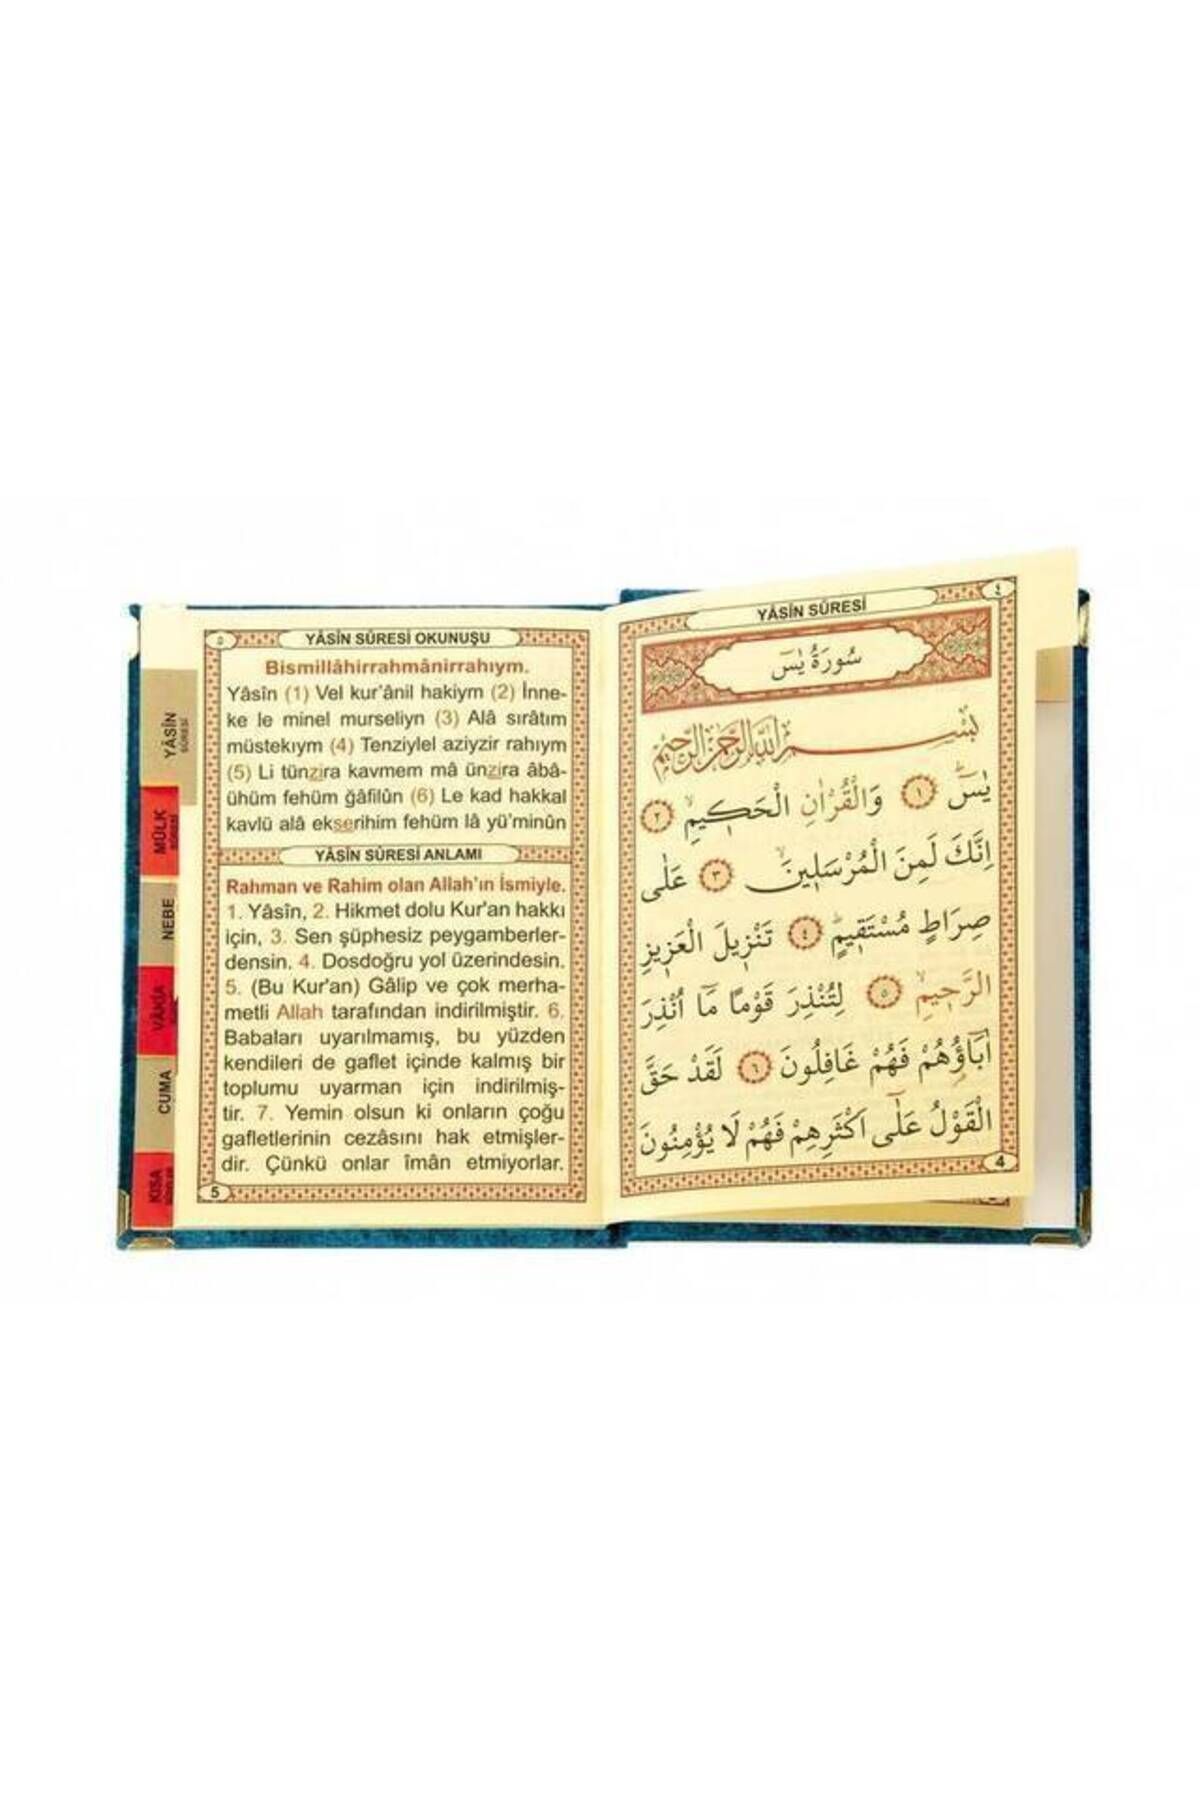 YÂSÎN SÛRESİ
٤
سُورَةُ يٰسٓ
بِسْمِ اللّٰهِ الرَّحْمٰنِ الرَّحِيمِ
يٰسٓۜ ﴿١﴾ وَالْقُرْاٰنِ الْحَكٖيمِۙ ﴿٢﴾
اِنَّكَ لَمِنَ الْمُرْسَلٖينَۙ ﴿٣﴾ عَلٰى
صِرَاطٍ مُسْتَقٖيمٍۜ ﴿٤﴾ تَنْزٖيلَ الْعَزٖيزِ
الرَّحٖيمِۙ ﴿٥﴾ لِتُنْذِرَ قَوْمًا مَٓا اُنْذِرَ
اٰبَٓاؤُ۬هُمْ فَهُمْ غَافِلُونَ ﴿٦﴾ لَقَدْ حَقَّ
الْقَوْلُ عَلٰٓى اَكْثَرِهِمْ فَهُمْ لَا يُؤْمِنُونَ
4
٥
YÂSÎN SÛRESİ OKUNUŞU
Bismillâhirrahmânirrahıym.
Yâsîn (1) Vel kur’ânil hakiym (2) İnne-
ke le minel murseliyn (3) Alâ sırâtım
müstekıym (4) Tenziylel aziyzir rahıym
(5) Li tünzira kavmem mâ ünzira âbâ-
ühüm fehüm ğâfilûn (6) Le kad hakkal
kavlü alâ ekserihim fehüm lâ yü’minûn
YÂSÎN SÛRESİ ANLAMI
Rahman ve Rahim olan Allah’ın İsmiyle.
1. Yâsîn, 2. Hikmet dolu Kur'an hakkı
için, 3. Sen şüphesiz peygamberler-
densin. 4. Dosdoğru yol üzerindesin.
5. (Bu Kur'an) Gâlip ve çok merha-
metli Allah tarafından indirilmiştir. 6.
Babaları uyarılmamış, bu yüzden
kendileri de gaflet içinde kalmış bir
toplumu uyarman için indirilmiş-
tir. 7. Yemin olsun ki onların çoğu
gafletlerinin cezâsını hak etmişler-
dir. Çünkü onlar îmân etmiyorlar.
5
YÂSÎN
SÛRESİ
MÜLK
SÛRESİ
NEBE
VÂKIA
CUMA
KISA